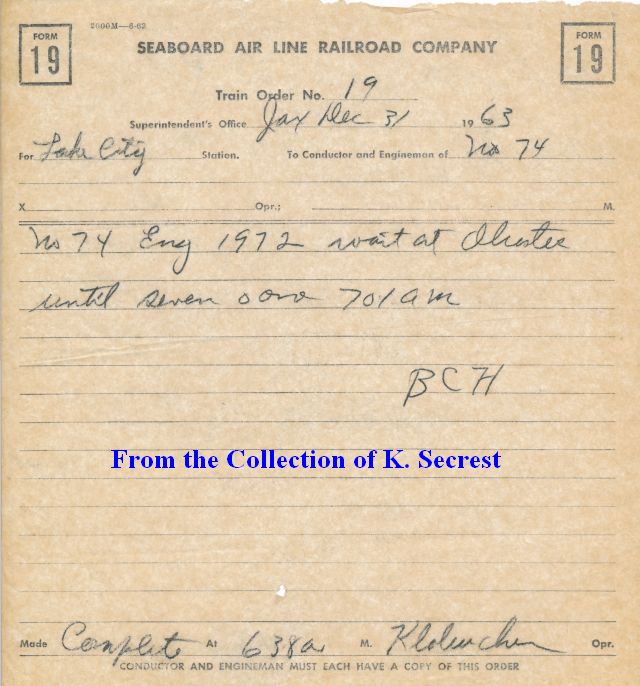 FORM 19
2000M—6-62
FORM 19
SEABOARD AIR LINE RAILROAD COMPANY
Train Order No. 19
Superintendent's Office Jax Dec 31 1963
For Lake City Station. To Conductor and Engineman of No 74
X Opr.; M.
No 74 Eng 1972 wait at Olustee
until seven o one 701 am
BCH
From the Collection of K. Secrest
Made Complete At 638a M. Opr.
CONDUCTOR AND ENGINEMAN MUST EACH HAVE A COPY OF THIS ORDER